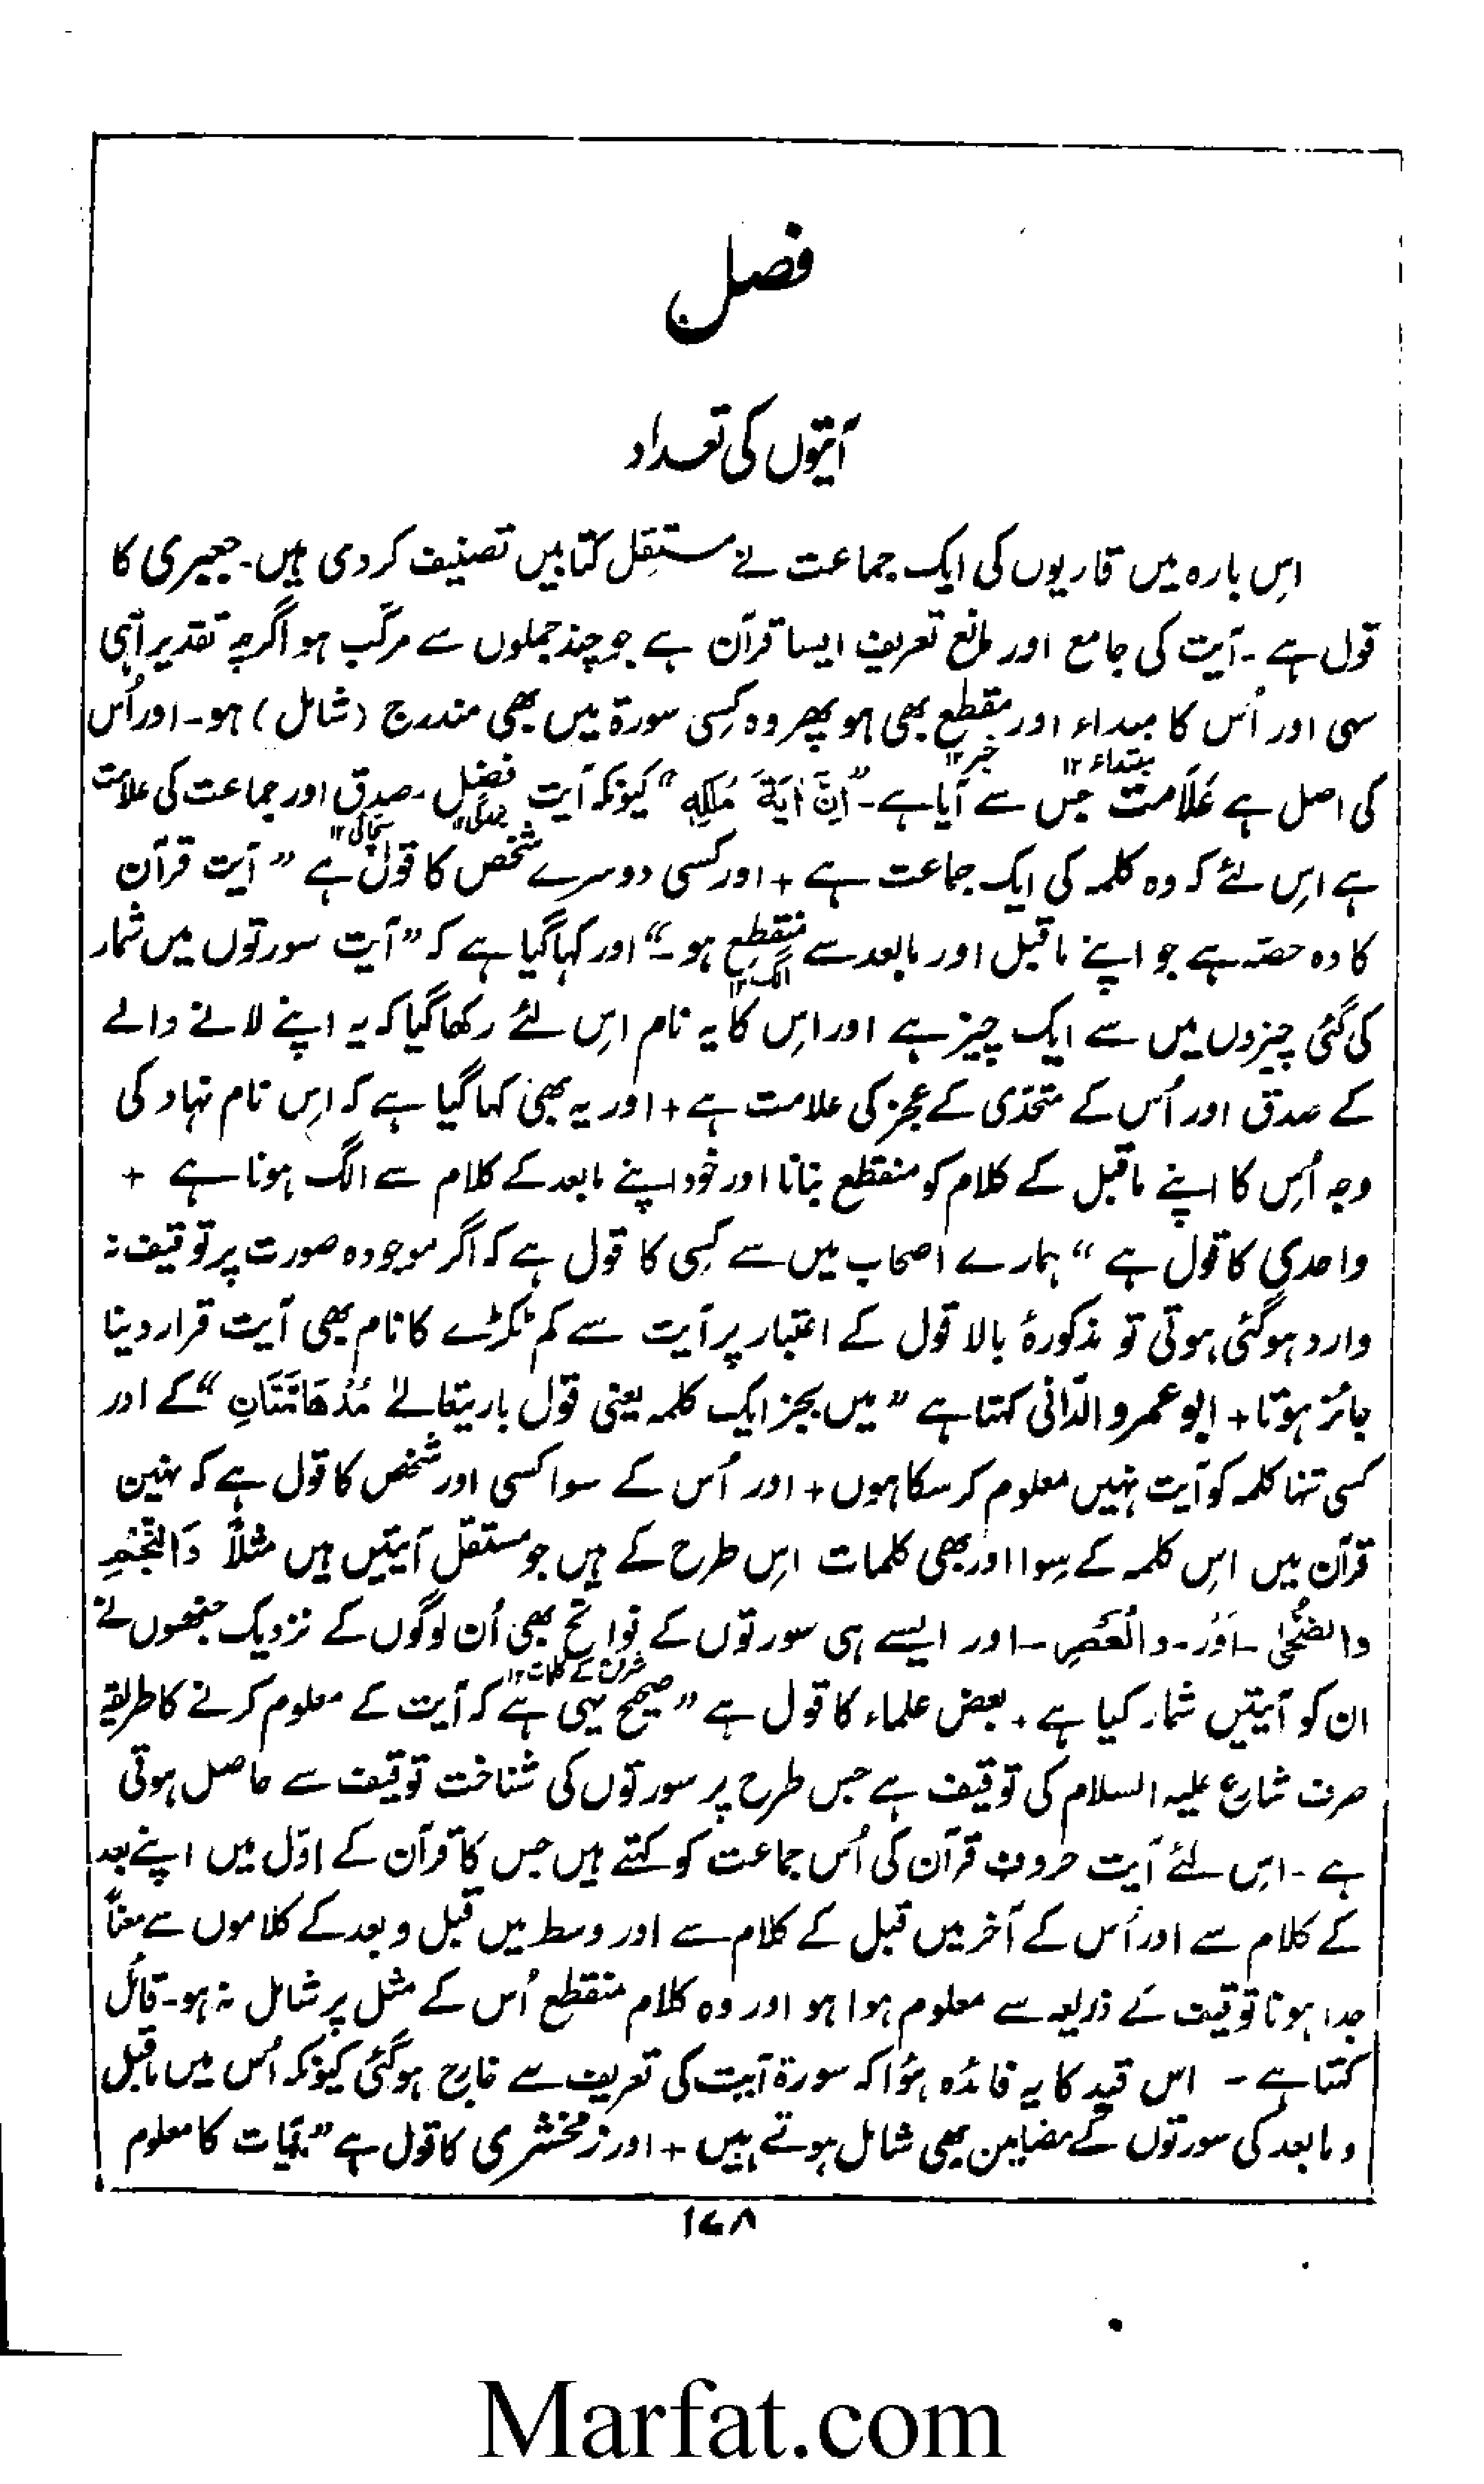 فصل
آیتوں کی تعداد
اِس بارہ میں قاریوں کی ایک جماعت نے مستقِل کتابیں تصنیف کردی ہیں۔ جعبیری کا
قول ہے ۔ آیت کی جامع اور مانع تعریف ایسا قرآن ہے جو چند جملوں سے مرکّب ہو اگرچہ تقدیراً ہی
سہی اور اُس کا مبداء اور مقطع بھی ہو پھر وہ کِسی سورۃ میں بھی مندرج (شامل) ہو۔ اور اُس
مبتداء ۱۲ خبر ۱۲
کی اصل ہے عَلَامت جس سے آیا ہے۔ ”اِنَّ اٰیَۃَ مُلْکِہٖ“ کیونکہ آیت فضل ۔ صدق اور جماعت کی علامت
سچائی ۱۲
ہے اِس لئے کہ وہ کلمہ کی ایک جماعت ہے + اور کسی دوسرے شخص کا قول ہے ”آیت قرآن
کا وہ حصّہ ہے جو اپنے ماقبل اور مابعد سے منقطع ہو۔“ اور کہا گیا ہے کہ ”آیت سورتوں میں شمار
الگ ۱۲
کی گئی چیزوں میں سے ایک چیز ہے اور اِس کا یہ نام اِس لئے رکھا گیا کہ یہ اپنے لانے والے
کے صدق اور اُس کے متحدّی کے عجز کی علامت ہے + اور یہ بھی کہا گیا ہے کہ اِس نام نہاد کی
وجہ اُس کا اپنے ماقبل کے کلام کو منقطع بنانا اور خود اپنے مابعد کے کلام سے الگ ہونا ہے +
واحدی کا قول ہے “ ہمارے اصحاب میں سے کِسی کا قول ہے کہ اگر موجودہ صورت پر توقیف نہ
وارد ہوگئی ہوتی تو مذکورۂ بالا قول کے اعتبار پر آیت سے کم ٹکڑے کا نام بھی آیت قرار دینا
جائز ہوتا + ابو عمرو الدّانی کہتا ہے ”میں بجز ایک کلمہ یعنی قول باریتعالےٰ مُدْھَامَّتَانِ“ کے اور
کسی تنہا کلمہ کو آیت نہیں معلوم کرسکا ہوں + اور اُس کے سوا کسی اور شخص کا قول ہے کہ نہین
قرآن میں اِس کلمہ کے سِوا اور بھی کلمات اِس طرح کے ہیں جو مستقل آیتیں ہیں مثلاً وَالنَّجْمِ
والضُّحٰی ۔ اَوْر ۔ والْعَصْرِ ۔ اور ایسے ہی سورتوں کے فواتح بھی اُن لوگوں کے نزدیک جنھوں نے
شروع کے کلمات ۱۲
ان کو آیتیں شمار کیا ہے ۔ بعض علماء کا قول ہے ”صحیح یہی ہے کہ آیت کے معلوم کرنے کا طریقہ
صرف شارع علیہ السلام کی توقیف ہے جس طرح پر سورتوں کی شناخت توقیف سے حاصل ہوتی
ہے ۔ اِس لئے آیت حروف قرآن کی اُس جماعت کو کہتے ہیں جس کا قرآن کے اوّل میں اپنے بعد
کے کلام سے اور اُس کے آخر میں قبل کے کلام سے اور وسط میں قبل و بعد کے کلاموں سے معناً
جدا ہونا توقیف کے ذریعہ سے معلوم ہوا ہو اور وہ کلام منقطع اُس کے مثل پر شامل نہ ہو۔ قائل
کہتا ہے ۔ اس قید کا یہ فائدہ ہؤا کہ سورۃ آیت کی تعریف سے خارج ہوگئی کیونکہ اُس میں ماقبل
و مابعد کی سورتوں کے مضامین بھی شامل ہوتے ہیں + اور زمخشری کا قول ہے ”آیات کا معلوم
۱۷۸
Marfat.com